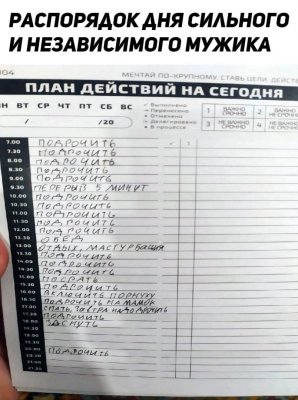 РАСПОРЯДОК ДНЯ СИЛЬНОГО
И НЕЗАВИСИМОГО МУЖИКА
МЕЧТАЙ ПО-КРУПНОМУ, СТАВЬ ЦЕЛИ, ДЕЙСТВ
ПЛАН ДЕЙСТВИЙ НА СЕГОДНЯ
ПН ВТ СР ЧТ ПТ СБ ВС
/ /20
Выполнено
Перенесено
Отменено
Делегировано
В процессе
1 ВАЖНО СРОЧНО 2
3 НЕ ВАЖНО СРОЧНО 4
7.00 ПОДРОЧИТЬ
7.30 ПОДРОЧИТЬ
8.00 ПОДРОЧИТЬ
8.30 ПОДРОЧИТЬ
9.00 ПОДРОЧИТЬ
9.30 ПЕРЕРЫВ 5 МИНУТ
10.00 ПОДРОЧИТЬ
10.30 ПОДРОЧИТЬ
11.00 ПОДРОЧИТЬ
11.30 ПОДРОЧИТЬ
12.00 ПОДРОЧИТЬ
12.30 ОБЕД
13.00 ОТДЫХ, МАСТУРБАЦИЯ
13.30 ПОДРОЧИТЬ
14.00 ПОДРОЧИТЬ
14.30 ПОДРОЧИТЬ
15.00 ПОСРАТЬ
15.30 ПОДРОЧИТЬ
16.00 ВКЛЮЧИТЬ ПОРНУХУ
16.30 ПОДРОЧИТЬ НА МАМОК
17.00 СПАТЬ, ЗАВТРА НАДО ДРОЧИТЬ
17.30 ПОДРОЧИТЬ
18.00 ЗАСНУТЬ
18.30
19.00
19.30
20.00 ПОДРОЧИТЬ
20.30
21.00
21.30